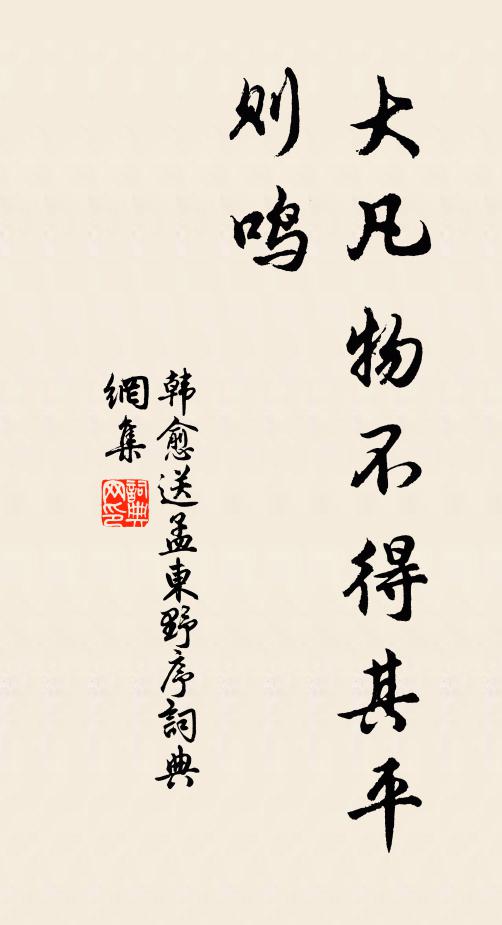 大凡物不得其平
则鸣
韩愈送孟東野序詞典
網集
詞典
网印